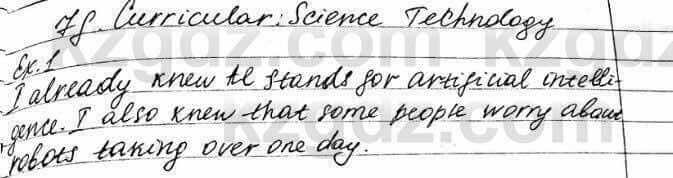 7f. Curricular: Science Technology
Ex. 1
I already knew AI stands for artificial intelli-
gence. I also knew that some people worry about
robots taking over one day.